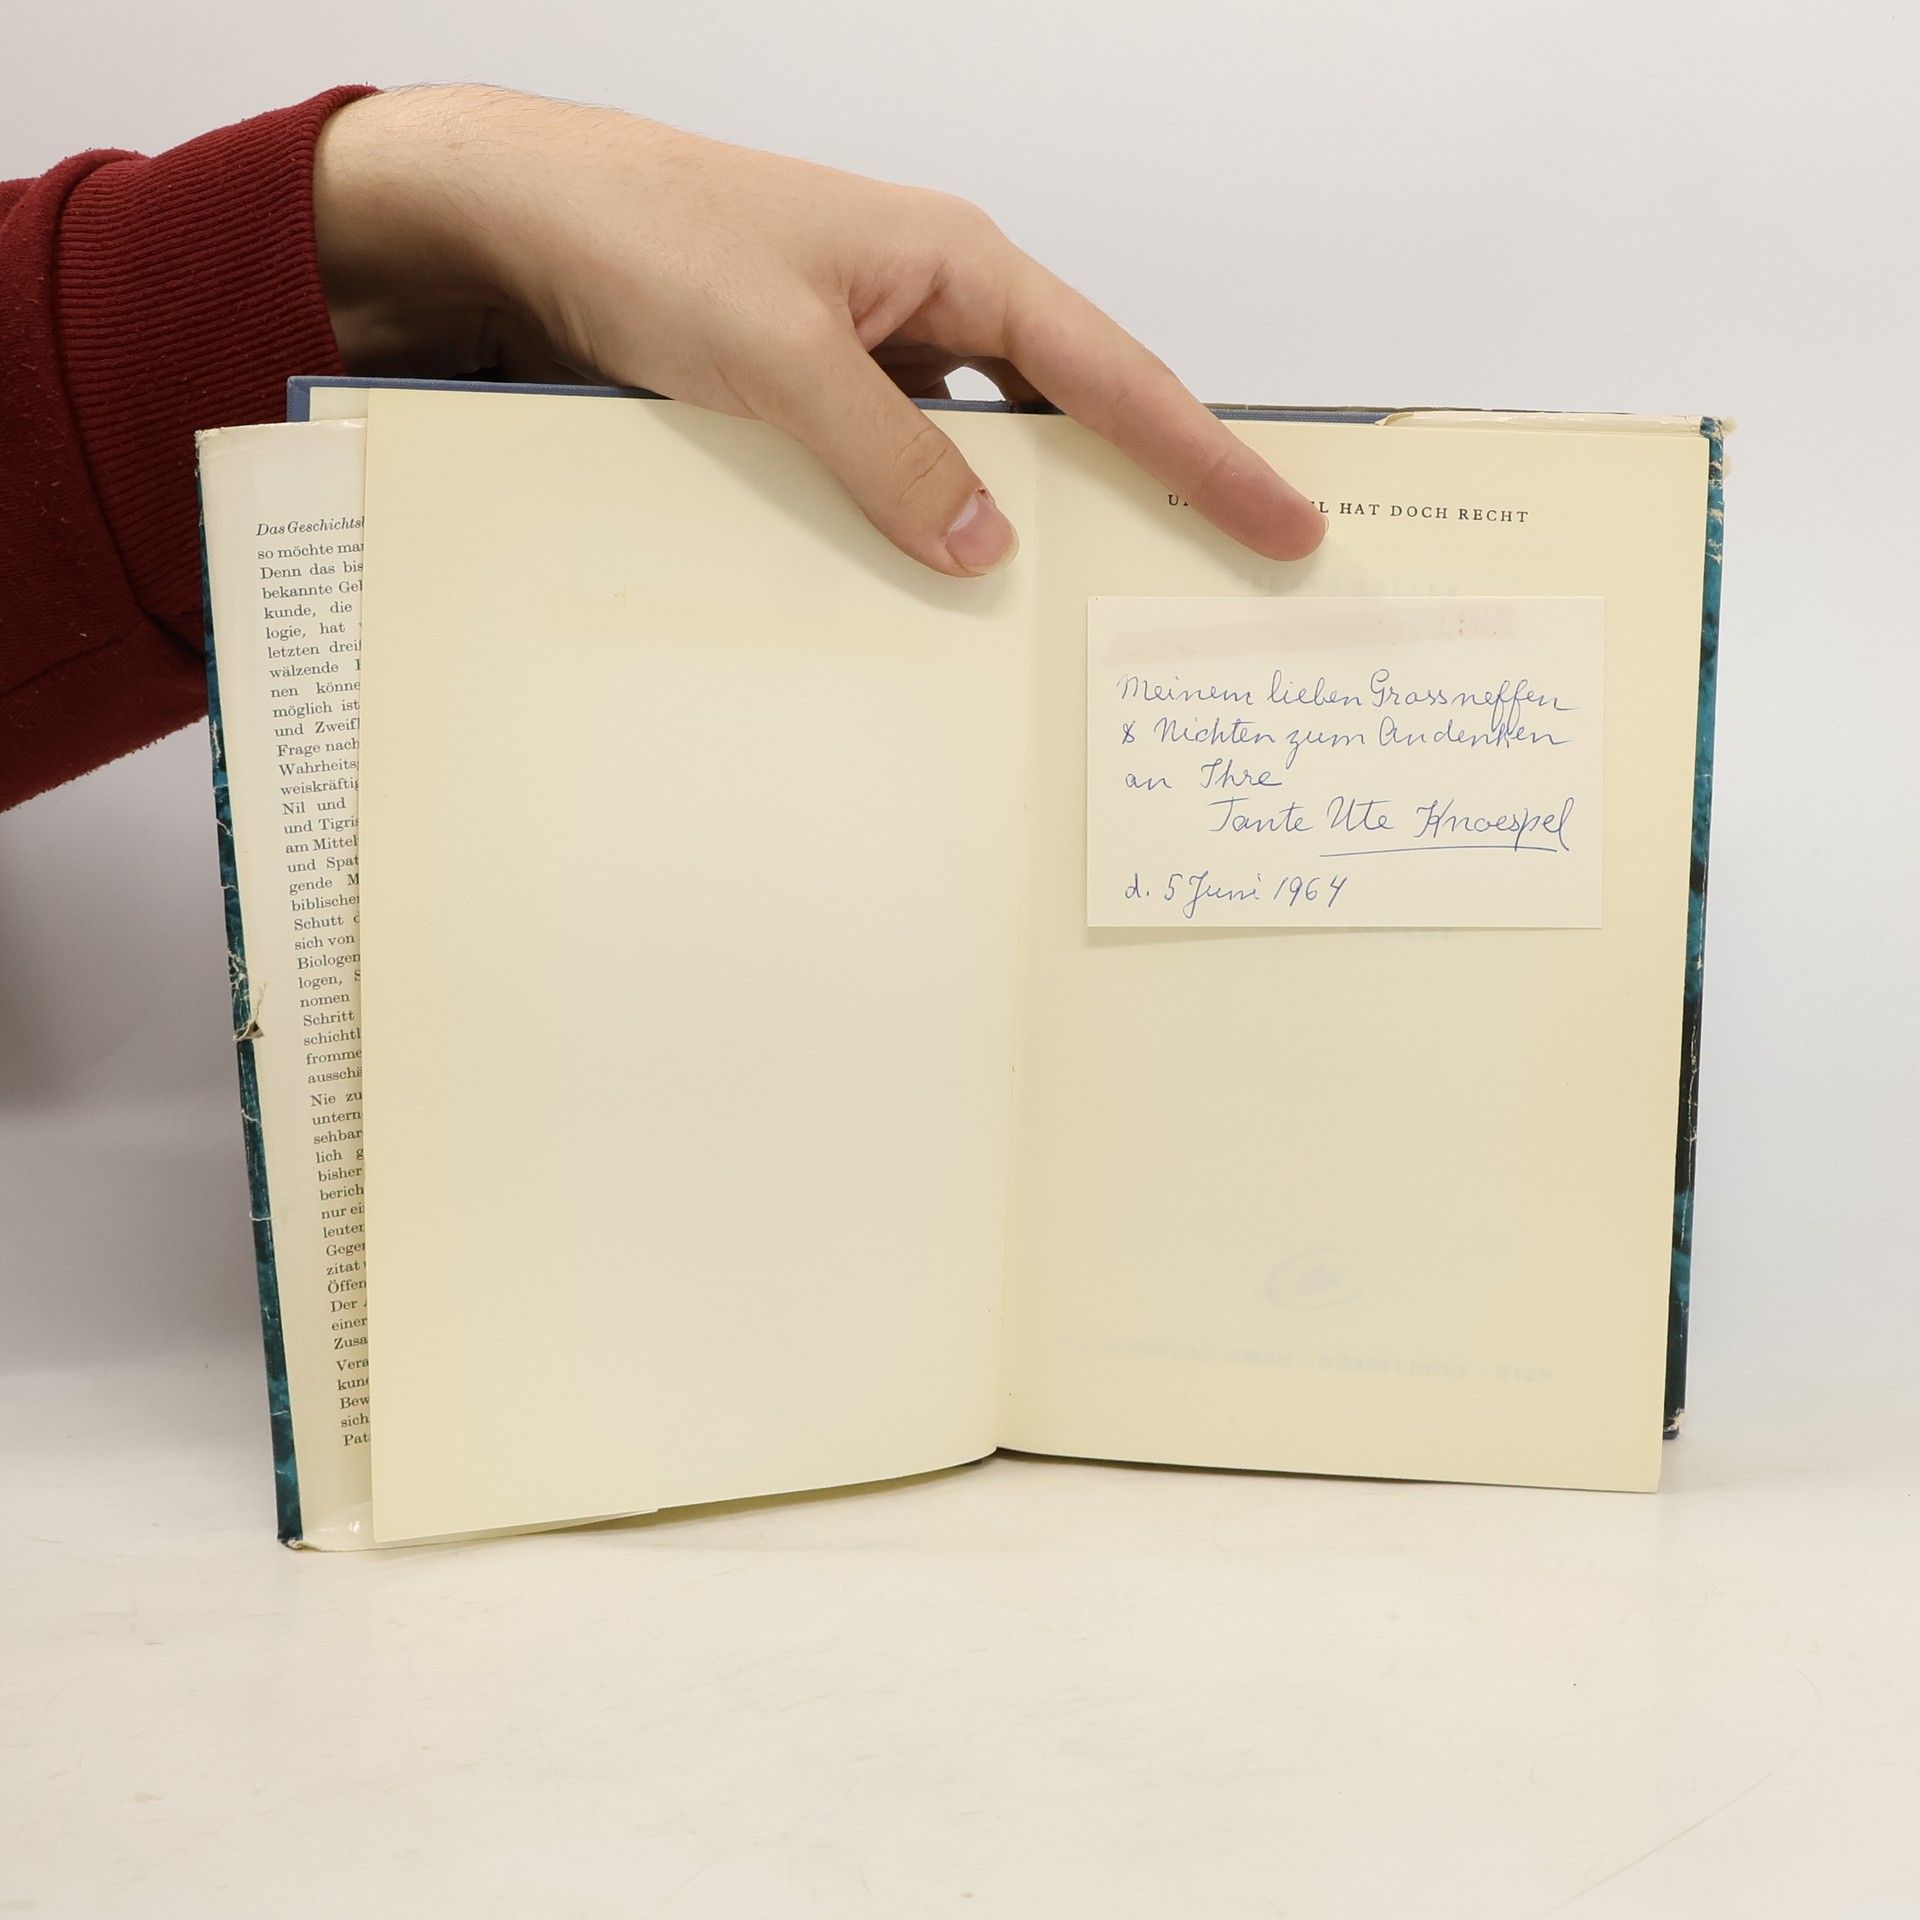 Das Geschichtsb
so möchte man
Denn das bis
bekannte Gel
kunde, die
logie, hat
letzten drei
wälzende
nen könne
möglich ist
und Zweif
Frage nach
Wahrheits
weiskräftig
Nil und
und Tigris
am Mittel
und Spat
gende M
biblischen
Schutt d
sich von
Biologen
logen, S
nomen
Schritt
schichtl
fromme
ausschä
Nie zu
untern
sehbar
lich g
bisher
berich
nur ei
leuten
Gegen
zitat
Öffen
Der
einer
Zusa
Vera
kund
Bew
sich
Pat
U L HAT DOCH RECHT
Meinem lieben Grossneffen
& Nichten zum Andenken
an Ihre
Tante Ute Knoespel
d. 5 Juni 1964